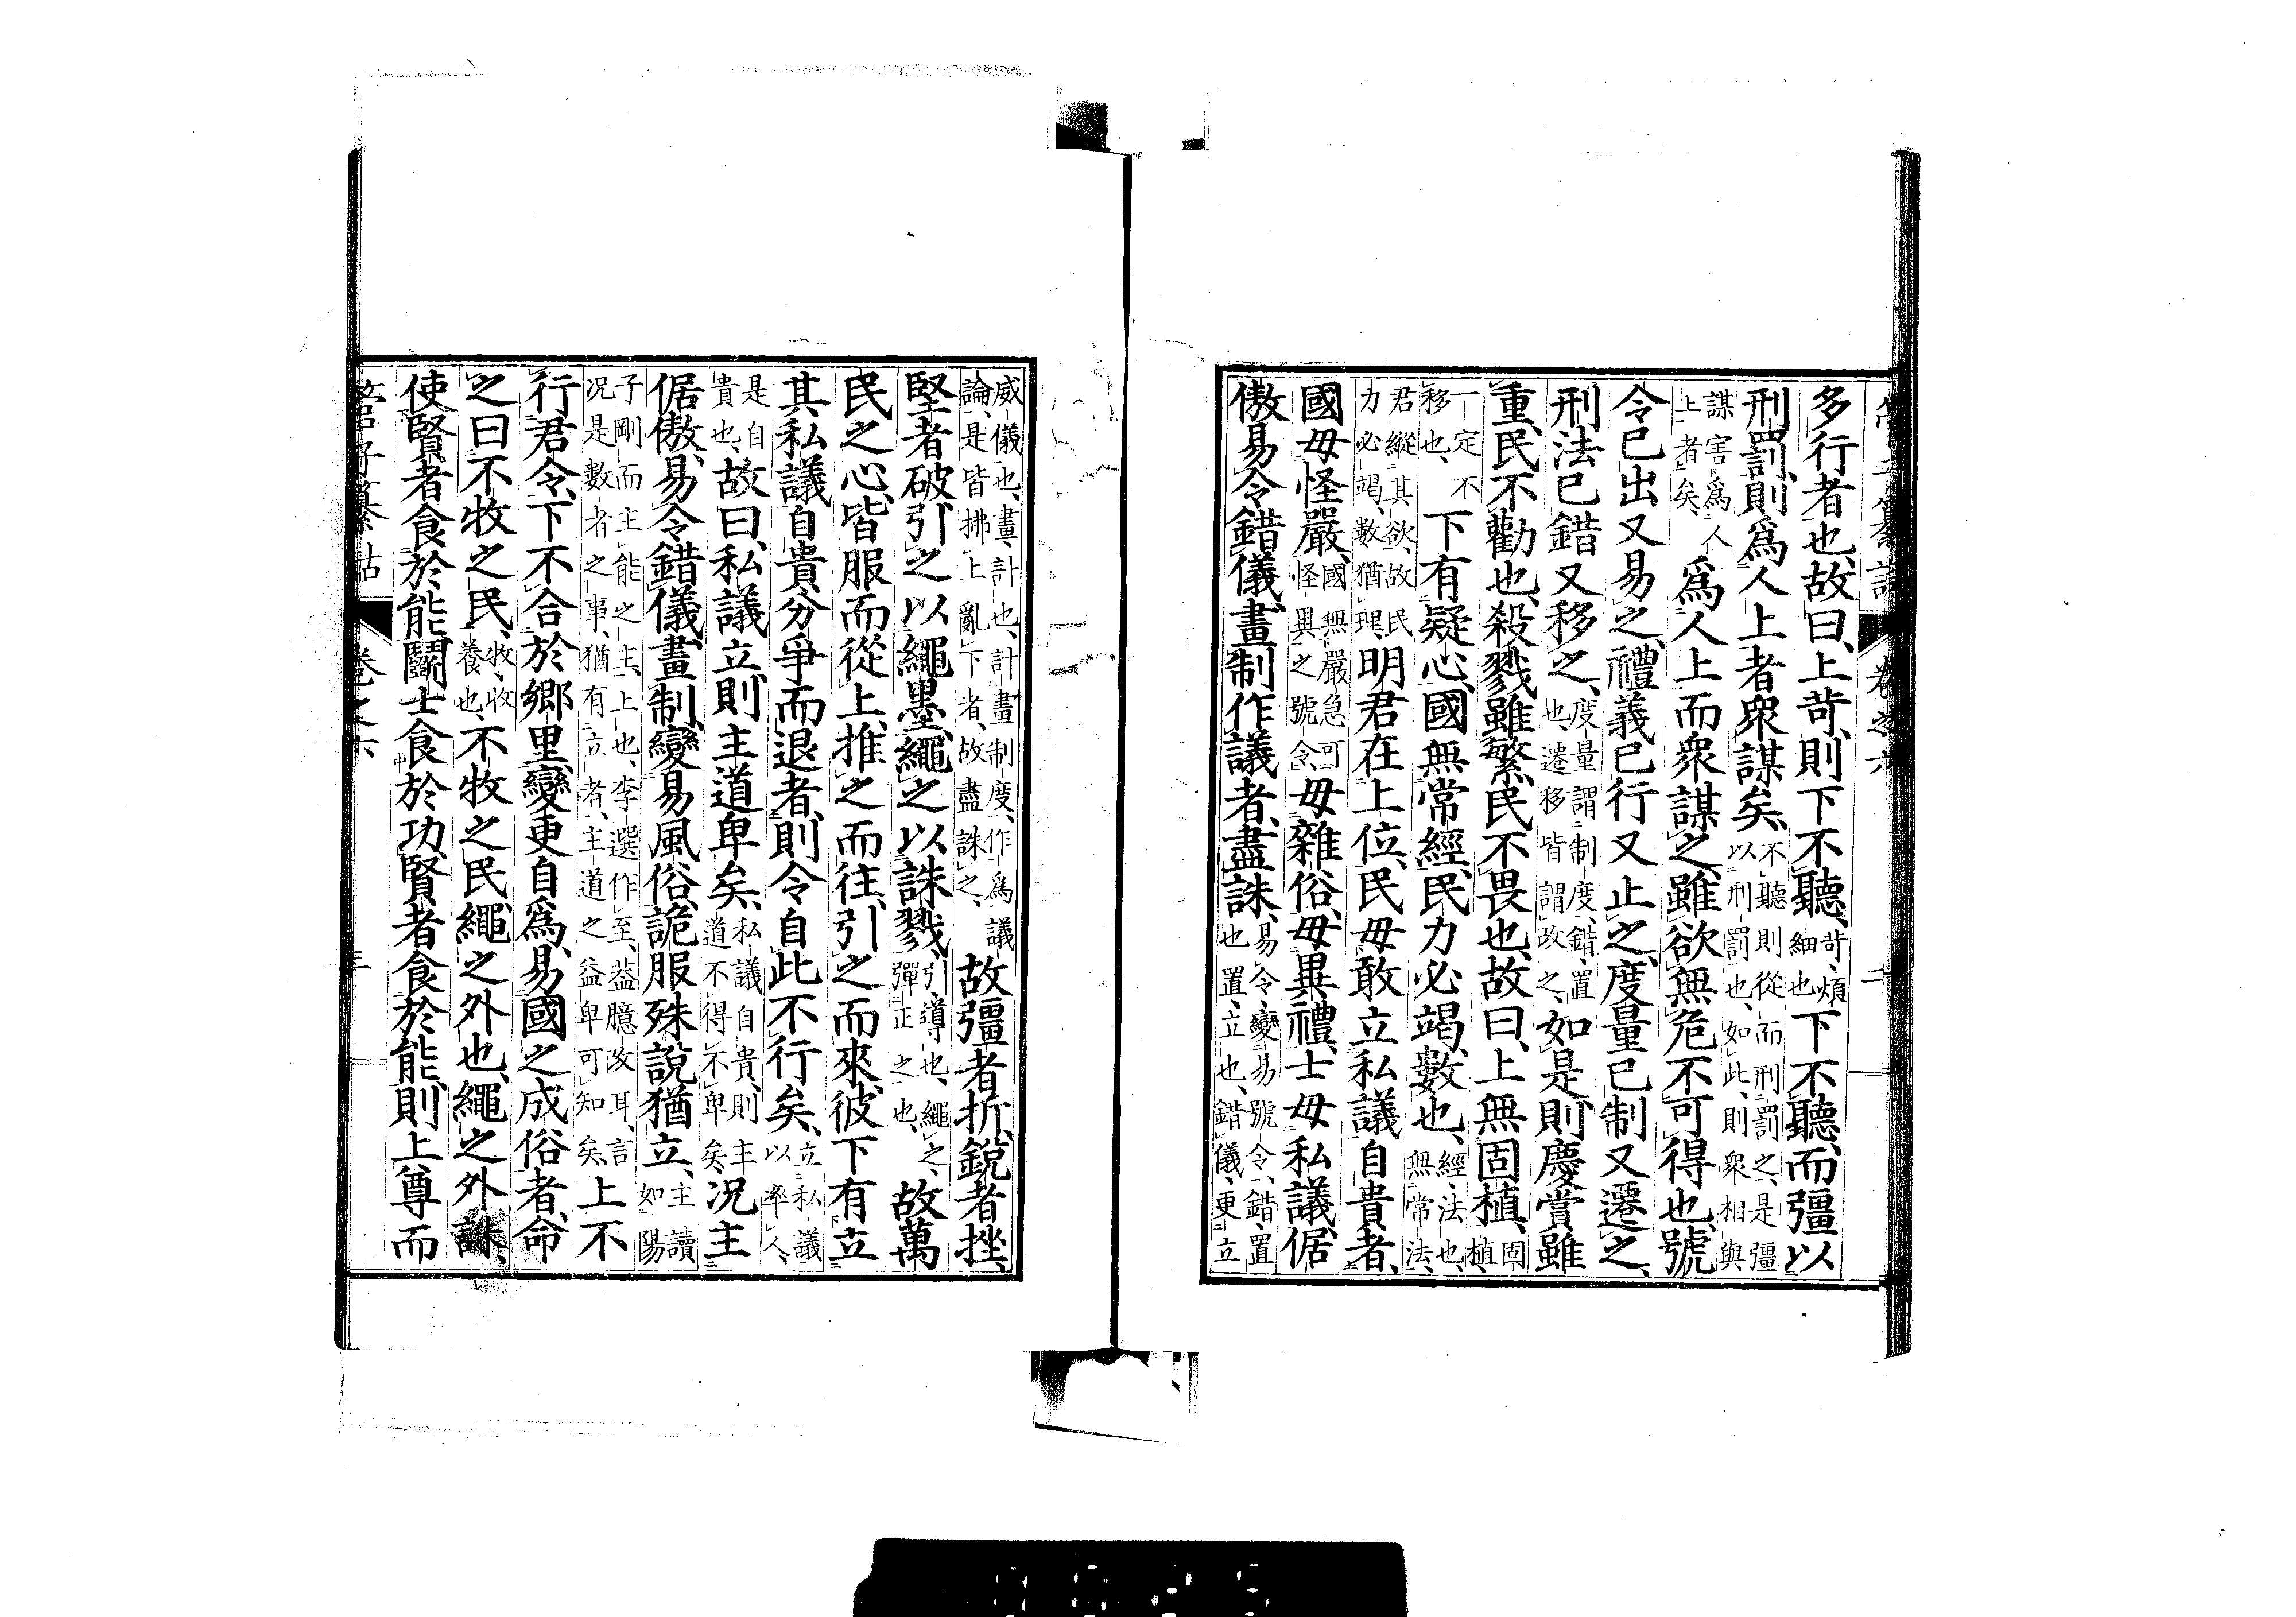 管子纂詁 卷之六 二
多行者也、故曰、上苛、則下不聽、苛、煩細也下不聽、而彊以
刑罰、則爲人上者衆謀矣、不聽則從而刑罰之、是彊以刑罰也、如此、則衆相與
謀害爲人上者矣、爲人上而衆謀之、雖欲無危不可得也、號
令已出又易之、禮義已行又止之、度量已制又遷之、
刑法已錯又移之、度量謂制度、錯、置也、遷移皆謂改之、如是則慶賞雖
重、民不勸也、殺戮雖繁、民不畏也、故曰、上無固植、固植
一定不移也、下有疑心、國無常經、民力必竭、數也、經、法也、無常法、
君縱其欲、故民力必竭、數猶理、明君在上位、民毋敢立私議自貴者、
國毋怪嚴、國無嚴急可怪異之號令、毋雜俗、毋異禮、士毋私議、倨
傲易令錯儀畫制作議者、盡誅、易令、變易號令、錯、置也置、立也、錯儀、更立
威儀也、畫、計也、計畫制度、作爲議論、是皆拂上亂下者、故盡誅之、故彊者折、銳者挫、
堅者破、引之以繩墨、繩之以誅戮、引、導也、繩之、彈正之也、故萬
民之心、皆服而從上、推之而往、引之而來、彼下有立
其私議自貴、分爭而退者、則令自此不行矣、立私議以率人、
是自貴也、故曰、私議立、則主道卑矣、私議自貴、則主道不得不卑矣、況主
倨傲、易令錯儀、畫制、變易風俗、詭服殊說猶立、主讀如陽
子剛而主能之主、上也、李選作至、益臆改耳、言況是數者之事、猶有立者、主道之益卑可知矣、上不
行君令、下不合於鄉里、變更自爲、易國之成俗者、命
之曰不牧之民、牧、收養也、不牧之民、繩之外也、繩之外誅、
使賢者食於能、鬭士食於功、賢者食於能、則上尊而
管子纂詁 卷之六 三